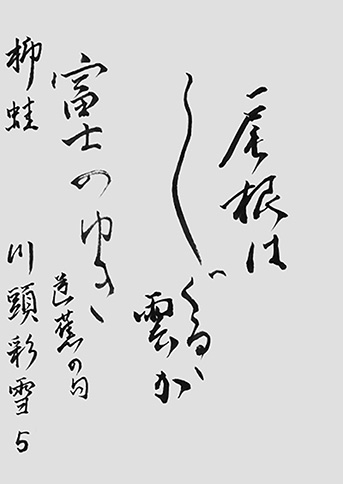 一尾根は
しぐるゝ
雲か
富士のゆき
芭蕉の句
柳蛙 川頭彩雪 5